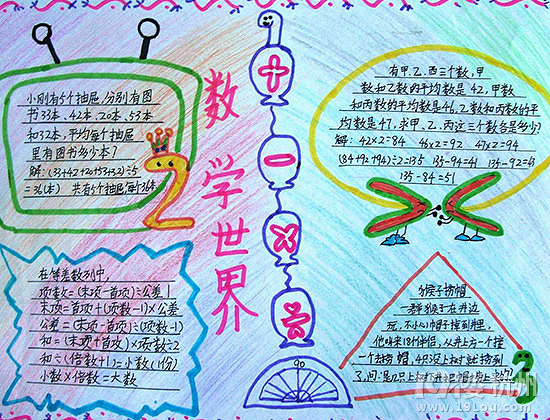 数学世界
小刚有5个抽屉,分别有图
书33本、42本、20本、53本
和32本,平均每个抽屉
里有图书多少本?
解:(33+42+20+53+32)÷5
=36(本) 共有5个抽屉,每个36本
2
在等差数列中,
项数=(末项-首项)÷公差+1
末项=首项+(项数-1)×公差
公差=(末项-首项)÷(项数-1)
和=(末项+首项)×项数÷2
和÷(倍数+1)=小数(1份)
小数×倍数=大数
+
-
×
÷
90
有甲、乙、丙三个数,甲
数和乙数的平均数是42,甲数
和丙数的平均数是46,乙数和丙数的平
均数是47,求甲、乙、丙这三个数各是多少?
解: 42×2=84 46×2=92 47×2=94
(84+92+94)÷2=135 135-94=41 135-92=43
135-84=51
猴子捞帽
一群猴子在井边
玩,不小心帽子掉到井里,
3
19楼 杭州
www.19lou.com